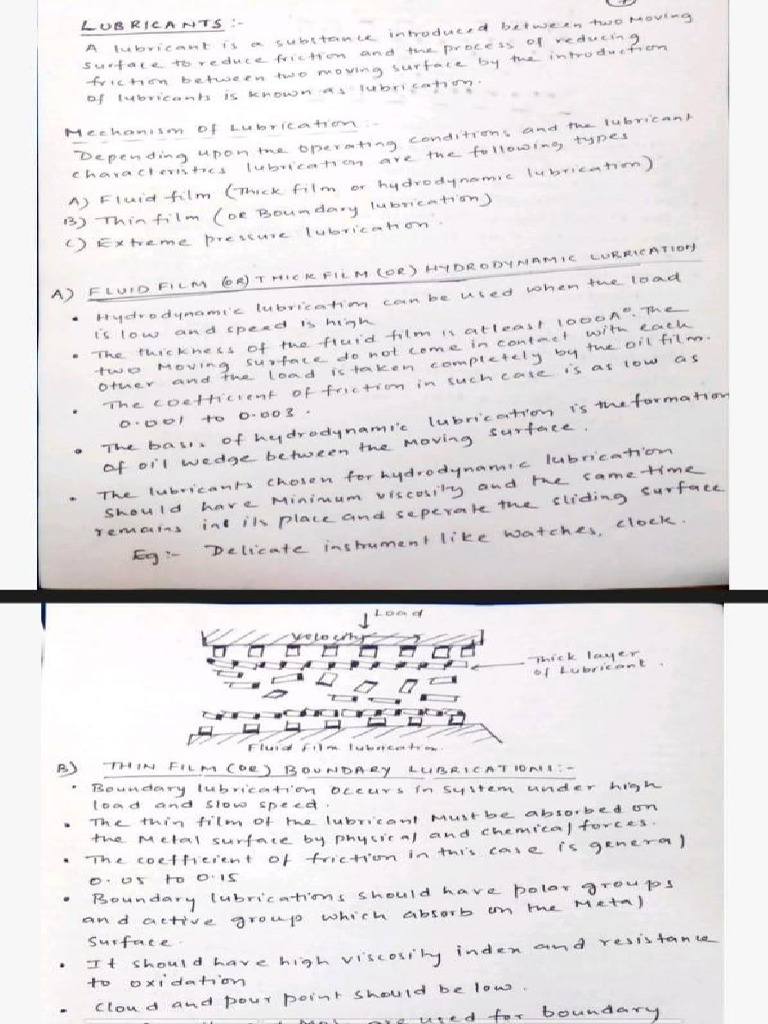 LUBRICANTS :-
A lubricant is a substance introduced between two moving
surface to reduce friction and the process of reducing
friction between two moving surface by the introduction
of lubricants is known as lubrication.
Mechanism of Lubrication :-
Depending upon the operating conditions and the lubricant
characteristics lubrication are the following types
A) Fluid film (Thick film or hydrodynamic lubrication)
B) Thin film (or Boundary lubrication)
C) Extreme pressure lubrication.
A) FLUID FILM (OR) THICK FILM (OR) HYDRODYNAMIC LUBRICATION
• Hydrodynamic lubrication can be used when the load
is low and speed is high
• The thickness of the fluid film is atleast 1000A°. The
two moving surface do not come in contact with each
other and the load is taken completely by the oil film.
• The coefficient of friction in such case is as low as
0.001 to 0.003.
• The basis of hydrodynamic lubrication is the formation
of oil wedge between the moving surface.
• The lubricants chosen for hydrodynamic lubrication
should have Minimum viscosity and the same time
remains in its place and seperate the sliding surface
Eg:- Delicate instrument like watches, clock.
Load
velocity
Thick layer
of Lubricant.
Fluid film lubrication.
B) THIN FILM (OR) BOUNDARY LUBRICATIONS:-
• Boundary lubrication occurs in system under high
load and slow speed.
• The thin film of the lubricant must be absorbed on
the Metal surface by physical and chemical forces.
• The coefficient of friction in this case is general
0.05 to 0.15
• Boundary lubrications should have polar groups
and active group which absorb on the Metal
surface.
• It should have high viscosity index and resistance
to oxidation
• Cloud and pour point should be low.
are used for boundary